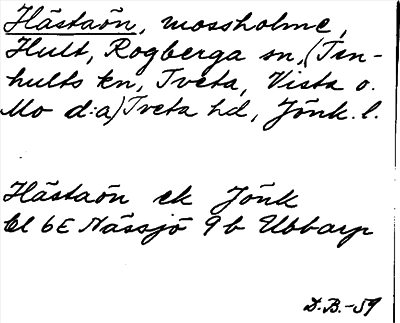 Hästaön, mossholme,
Hult, Rogberga sn, (Ten-
hults kn, Tveta, Vista o.
Mo d:a) Tveta hd, Jönk. l.
Hästaön ek Jönk
bl 6E Nässjö 9b Ubbarp
D.B.-59